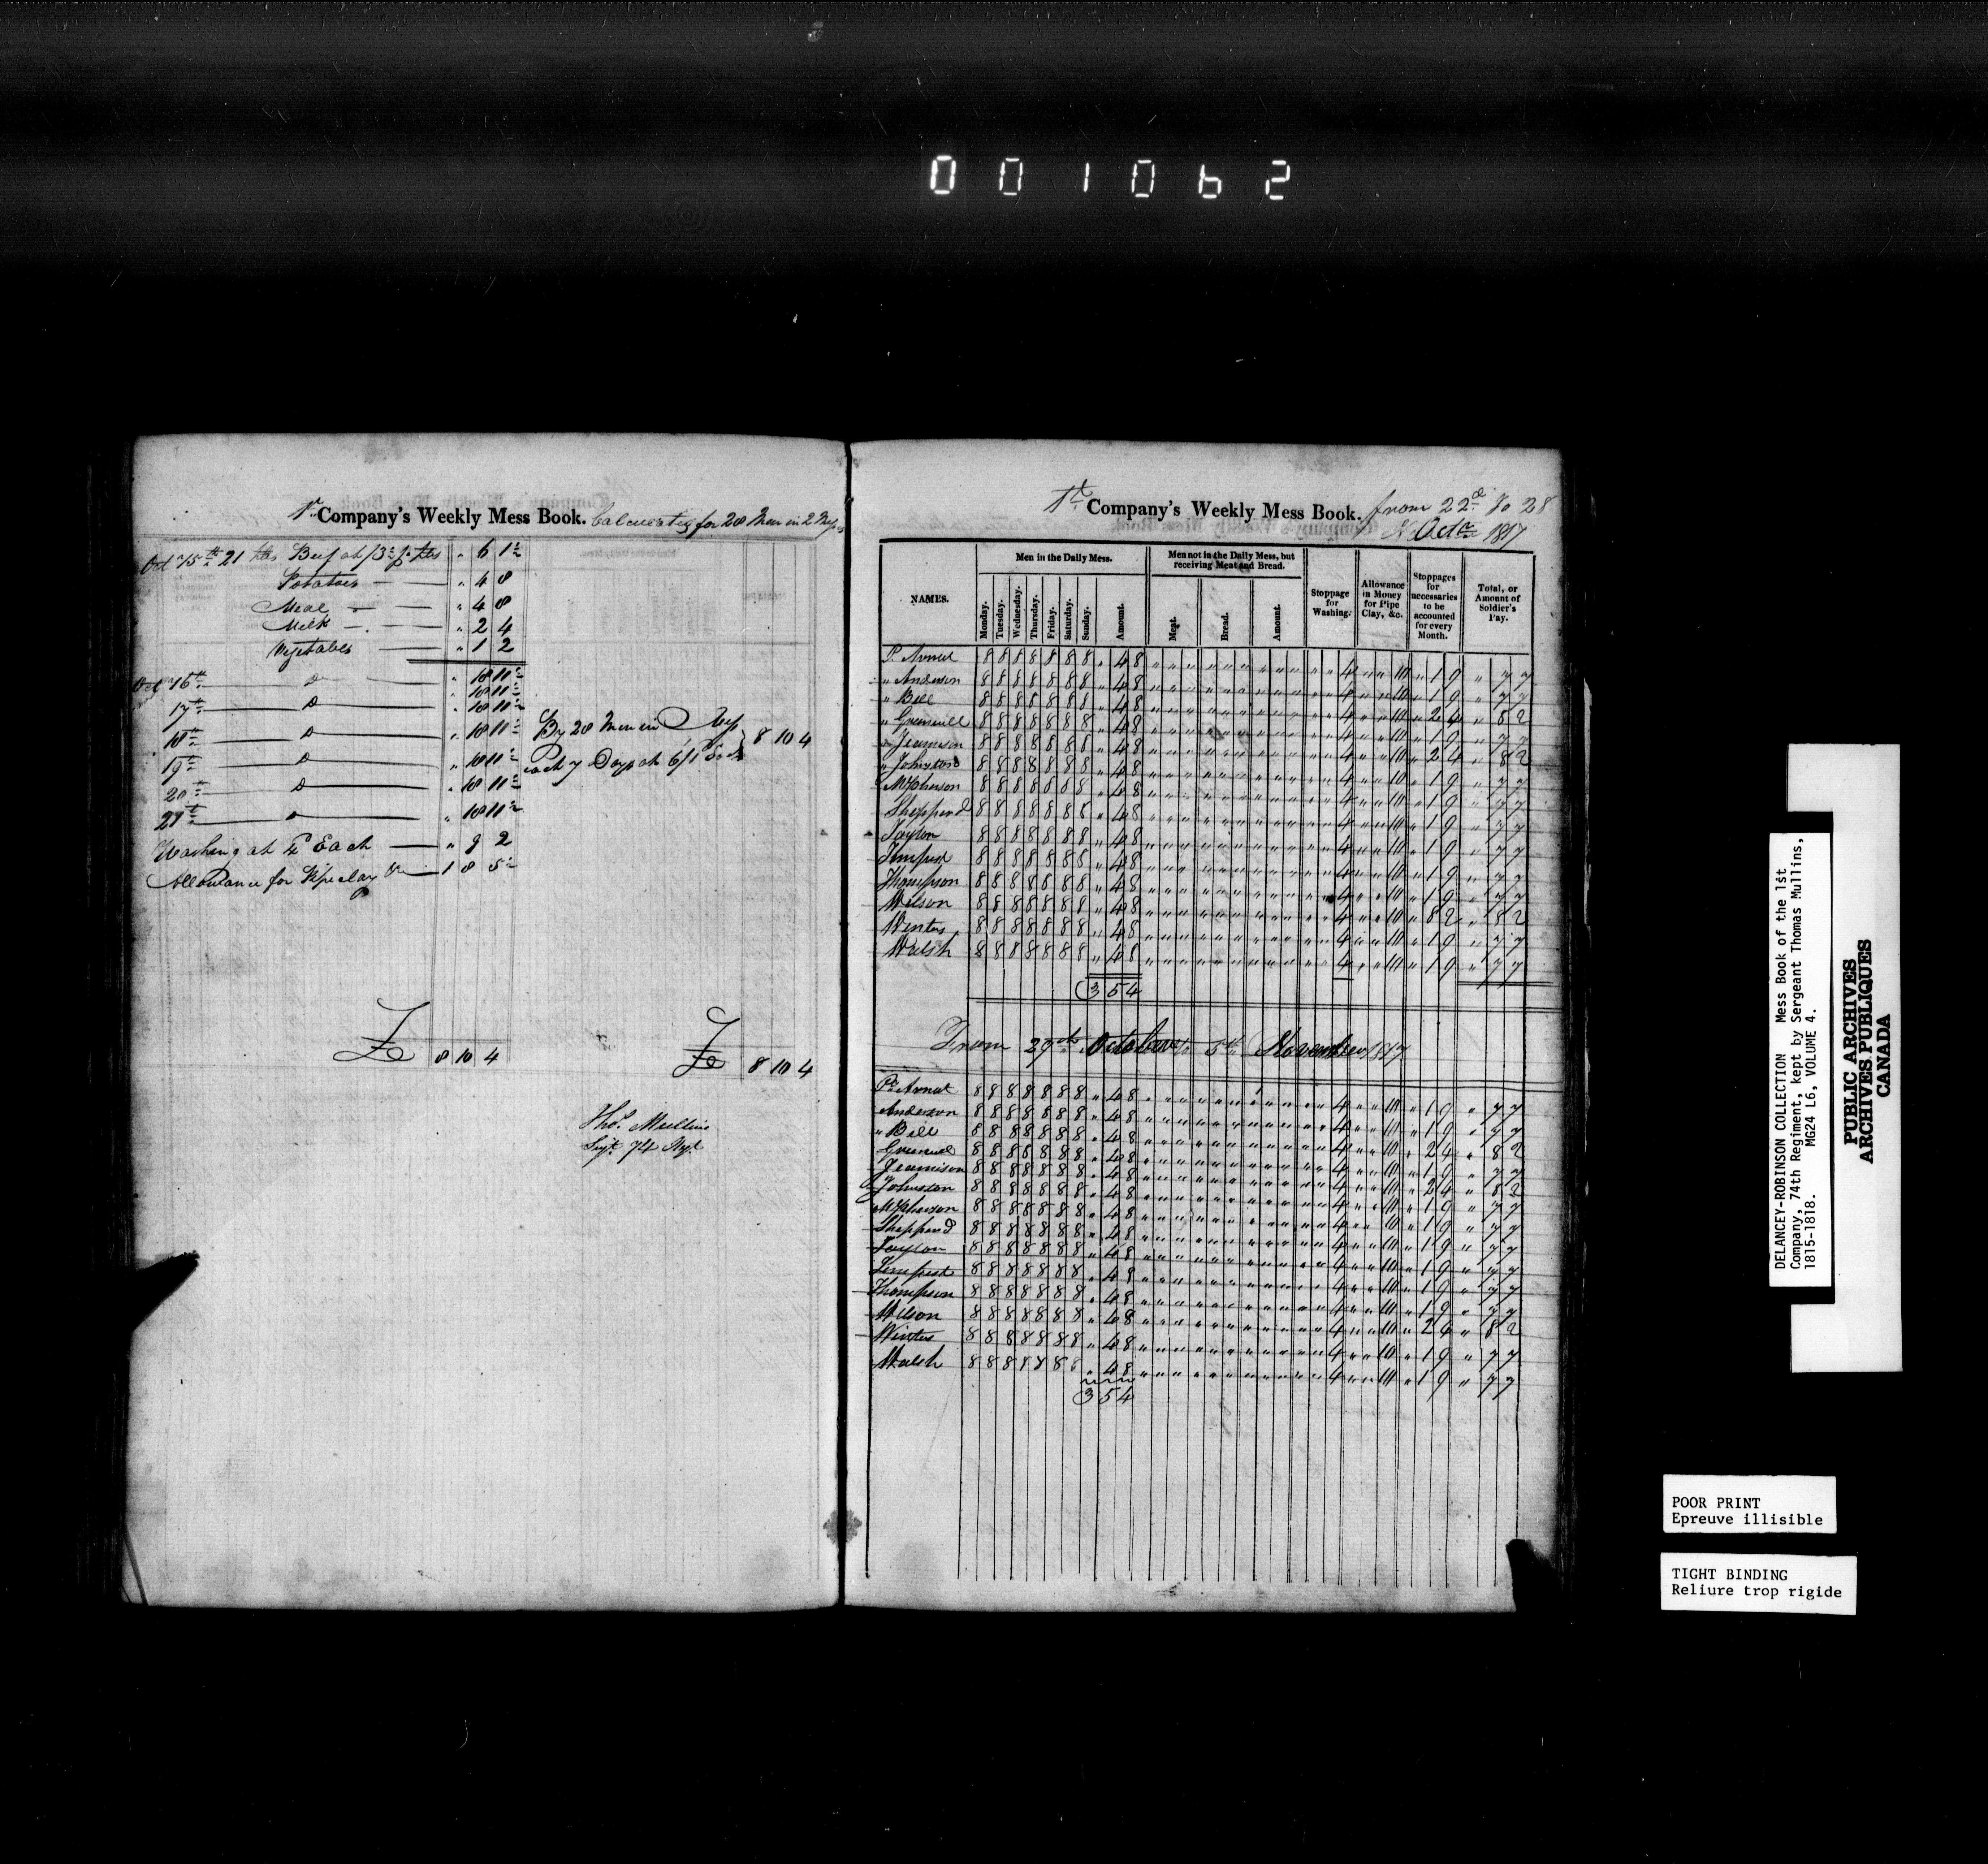 001062
1st Company's Weekly Mess Book. Calculating for 28 Men in 2 Messes
Oct 15th 21 lbs Beef at /3½ p. lb " 6 1½
Potatoes " 4 8
Meal " 4 8
Milk " 2 4
Vegetables " 1 2
" 18 11½
Oct 16th Do " 18 11½
17th Do " 18 11½
18th Do " 18 11½
19th Do " 18 11½
20th Do " 18 11½
21st Do " 18 11½
By 28 Men in Mess
each 7 Days at 6/1 Each 8 10 4
Washing at Each " 9 2
Allowance for Pipe clay &c 1 8 5
£ 8 10 4
£ 8 10 4
Thos. Mullins
Serjt. 74 Regt
1st Company's Weekly Mess Book. from 22d To 28
Octr 1817
NAMES.
Men in the Daily Mess.
Monday. Tuesday. Wednesday. Thursday. Friday. Saturday. Sunday. Amount.
Men not in the Daily Mess, but receiving Meat and Bread.
Meat. Bread. Amount.
Stoppage for Washing.
Allowance in Money for Pipe Clay, &c.
Stoppages for necessaries to be accounted for every Month.
Total, or Amount of Soldier's Pay.
P. Arnut 8 8 8 8 8 8 8 " 4 8 " 4 " " 10 " 1 9 " 7 7
" Anderson 8 8 8 8 8 8 8 " 4 8 " 4 " " 10 " 1 9 " 7 7
" Bell 8 8 8 8 8 8 8 " 4 8 " 4 " " 10 " 2 4 " 8 2
" Greenwell 8 8 8 8 8 8 8 " 4 8 " 4 " " 10 " 1 9 " 7 7
Jeamison 8 8 8 8 8 8 8 " 4 8 " 4 " " 10 " 2 4 " 8 2
" Johnston 8 8 8 8 8 8 8 " 4 8 " 4 " " 10 " 1 9 " 7 7
McPherson 8 8 8 8 8 8 8 " 4 8 " 4 " " 10 " 1 9 " 7 7
Sheppard 8 8 8 8 8 8 8 " 4 8 " 4 " " 10 " 1 9 " 7 7
Taylor 8 8 8 8 8 8 8 " 4 8 " 4 " " 10 " 1 9 " 7 7
Tempest 8 8 8 8 8 8 8 " 4 8 " 4 " " 10 " 1 9 " 7 7
Thompson 8 8 8 8 8 8 8 " 4 8 " 4 " " 10 " 1 9 " 7 7
Wilson 8 8 8 8 8 8 8 " 4 8 " 4 " " 10 " 8 2 " 8 2
Winter 8 8 8 8 8 8 8 " 4 8 " 4 " " 10 " 1 9 " 7 7
Walsh 8 8 8 8 8 8 8 " 4 8 " 4 " " 10 " 1 9 " 7 7
3 5 4
From 29th October to 5th November 1817
P. Arnut 8 8 8 8 8 8 8 " 4 8 " 4 " " 10 " 1 9 " 7 7
Anderson 8 8 8 8 8 8 8 " 4 8 " 4 " " 10 " 1 9 " 7 7
" Bell 8 8 8 8 8 8 8 " 4 8 " 4 " " 10 " 2 4 " 8 2
Greenwell 8 8 8 8 8 8 8 " 4 8 " 4 " " 10 " 1 9 " 7 7
Jeamison 8 8 8 8 8 8 8 " 4 8 " 4 " " 10 " 2 4 " 8 2
Johnston 8 8 8 8 8 8 8 " 4 8 " 4 " " 10 " 1 9 " 7 7
McPherson 8 8 8 8 8 8 8 " 4 8 " 4 " " 10 " 1 9 " 7 7
Sheppard 8 8 8 8 8 8 8 " 4 8 " 4 " " 10 " 1 9 " 7 7
Taylor 8 8 8 8 8 8 8 " 4 8 " 4 " " 10 " 1 9 " 7 7
Tempest 8 8 8 8 8 8 8 " 4 8 " 4 " " 10 " 1 9 " 7 7
Thompson 8 8 8 8 8 8 8 " 4 8 " 4 " " 10 " 1 9 " 7 7
Wilson 8 8 8 8 8 8 8 " 4 8 " 4 " " 10 " 2 4 " 8 2
Winter 8 8 8 8 8 8 8 " 4 8 " 4 " " 10 " 1 9 " 7 7
Walsh 8 8 8 8 8 8 8 " 4 8 " 4 " " 10 " 1 9 " 7 7
3 5 4
DELANCEY-ROBINSON COLLECTION Mess Book of the 1st
Company, 74th Regiment, kept by Sergeant Thomas Mullins,
1815-1818. MG24 L6, VOLUME 4.
PUBLIC ARCHIVES
ARCHIVES PUBLIQUES
CANADA
POOR PRINT
Epreuve illisible
TIGHT BINDING
Reliure trop rigide